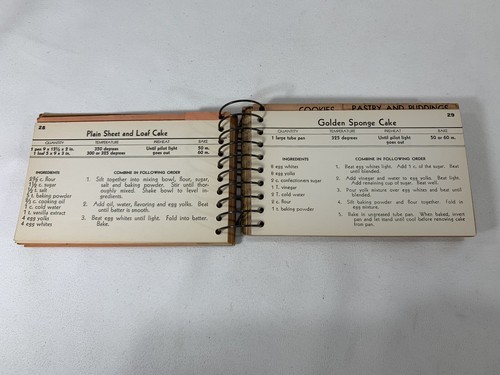 28
Plain Sheet and Loaf Cake
QUANTITY TEMPERATURE PREHEAT BAKE
1 pan 9 x 12½ x 2 in. 350 degrees Until pilot light 50 m.
1 loaf 5 x 9 x 3 in. 300 or 325 degrees goes out 60 m.
INGREDIENTS COMBINE IN FOLLOWING ORDER
c. flour
1½ c. sugar
½ t. salt
t. baking powder
c. cooking oil
1 c. cold water
1 t. vanilla extract
4 egg yolks
4 egg whites
1. Sift together into mixing bowl, flour, sugar,
salt and baking powder. Stir until thor-
ingredients.
2. Add oil, water, flavoring and egg yolks. Beat
until batter is smooth.
3. Beat egg whites until light. Fold into batter.
Bake.
COOKIES PASTRY AND PUDDINGS
29
Golden Sponge Cake
QUANTITY TEMPERATURE PREHEAT BAKE
1 large tube pan 325 degrees Until pilot light 50 or 60 m.
goes out
INGREDIENTS COMBINE IN FOLLOWING ORDER
8 egg whites
8 egg yolks
c. confectioners sugar
1 t. vinegar
t. cold water
c. flour
1 t. baking powder
1. Beat egg whites light. Add 1 c. of the sugar. Beat
until blended.
2. Add vinegar and water to egg yolks. Beat until light.
Add remaining cup of sugar. Beat well.
3. Pour yolk mixture over egg whites and beat until
blended.
4. Sift baking powder and flour together. Fold in
egg mixture.
5. Bake in ungreased tube pan. When baked, invert
pan and let stand until cool before removing cake
from pan.